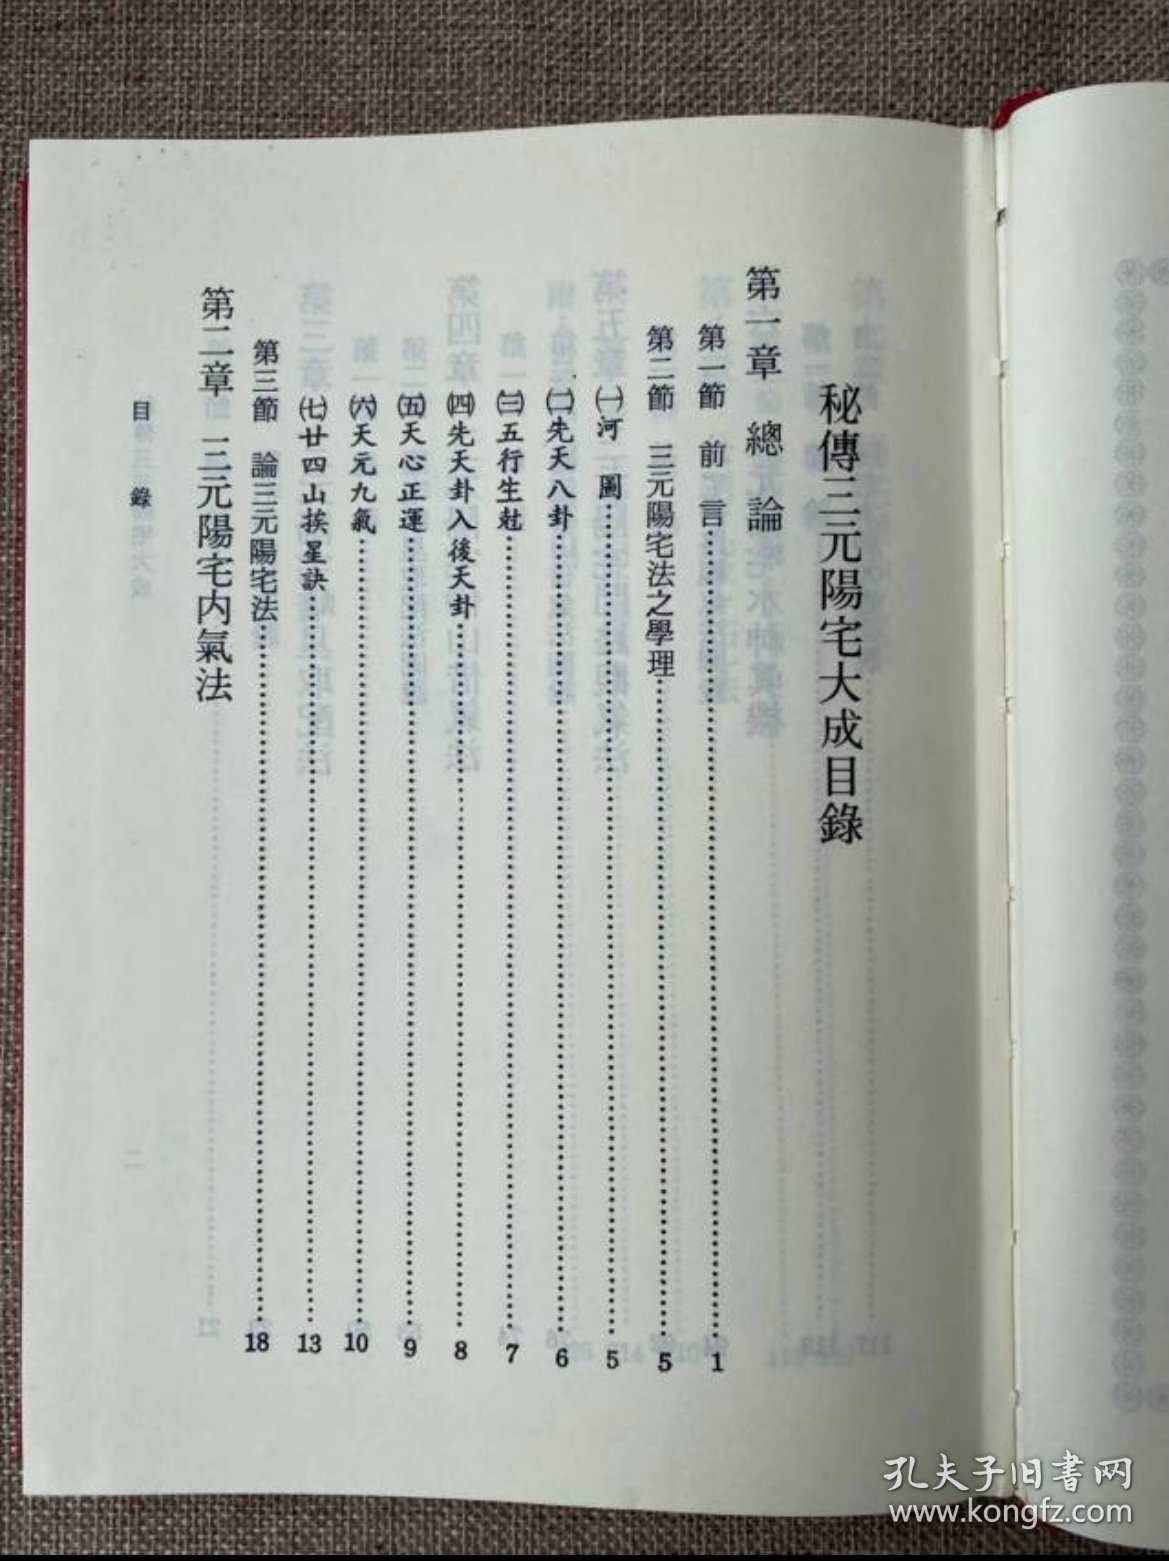 秘傳三元陽宅大成目錄
第一章 總論
第一節 前言……1
第二節 三元陽宅法之學理……5
㈠河圖……5
㈡先天八卦……6
㈢五行生尅……7
㈣先天卦入後天卦……8
㈤天心正運……9
㈥天元九氣……10
㈦廿四山挨星訣……13
第三節 論三元陽宅法……18
第二章 三元陽宅內氣法
目錄
孔夫子旧書网
www.kongfz.com